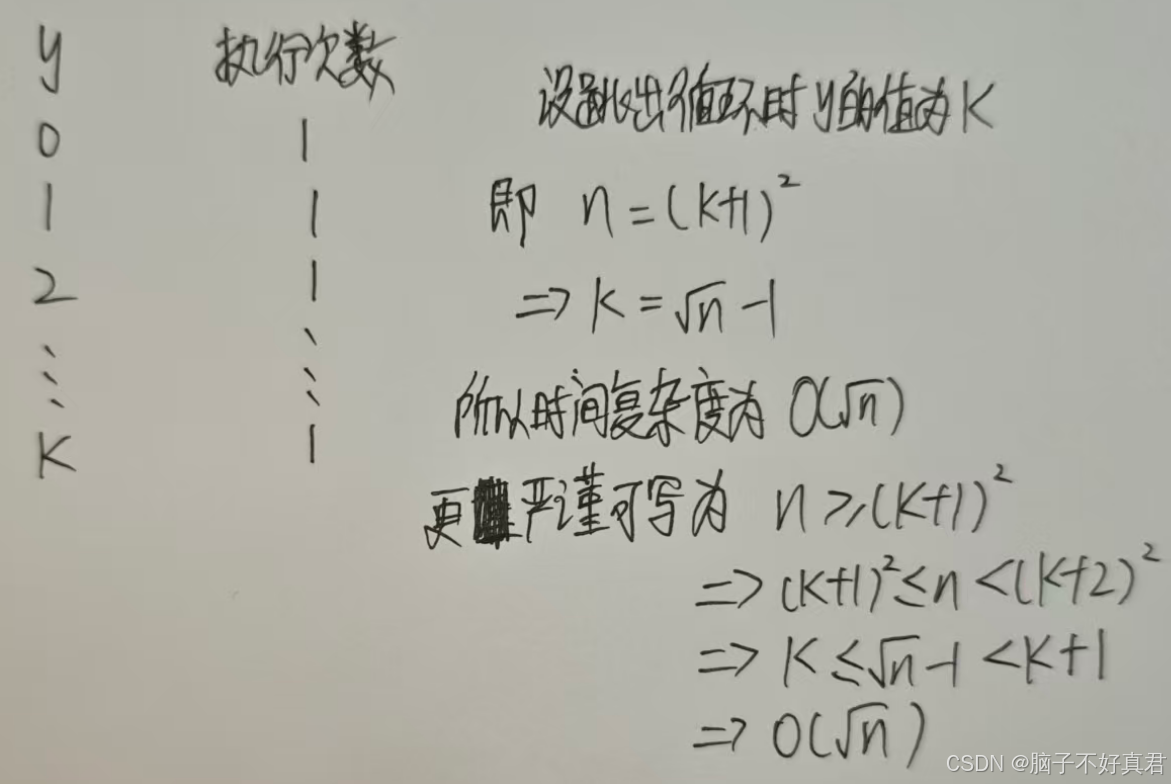 y 执行次数
0 1
1 1
2 1
⋮ ⋮
K 1
设跳出循环时y的值为K
即 n=(k+1)²
=> k=√n-1
所以时间复杂度为 O(√n)
更严谨可写为 n≥(k+1)²
=> (k+1)²≤n<(k+2)²
=> k≤√n-1<k+1
=> O(√n)
CSDN @脑子不好真君